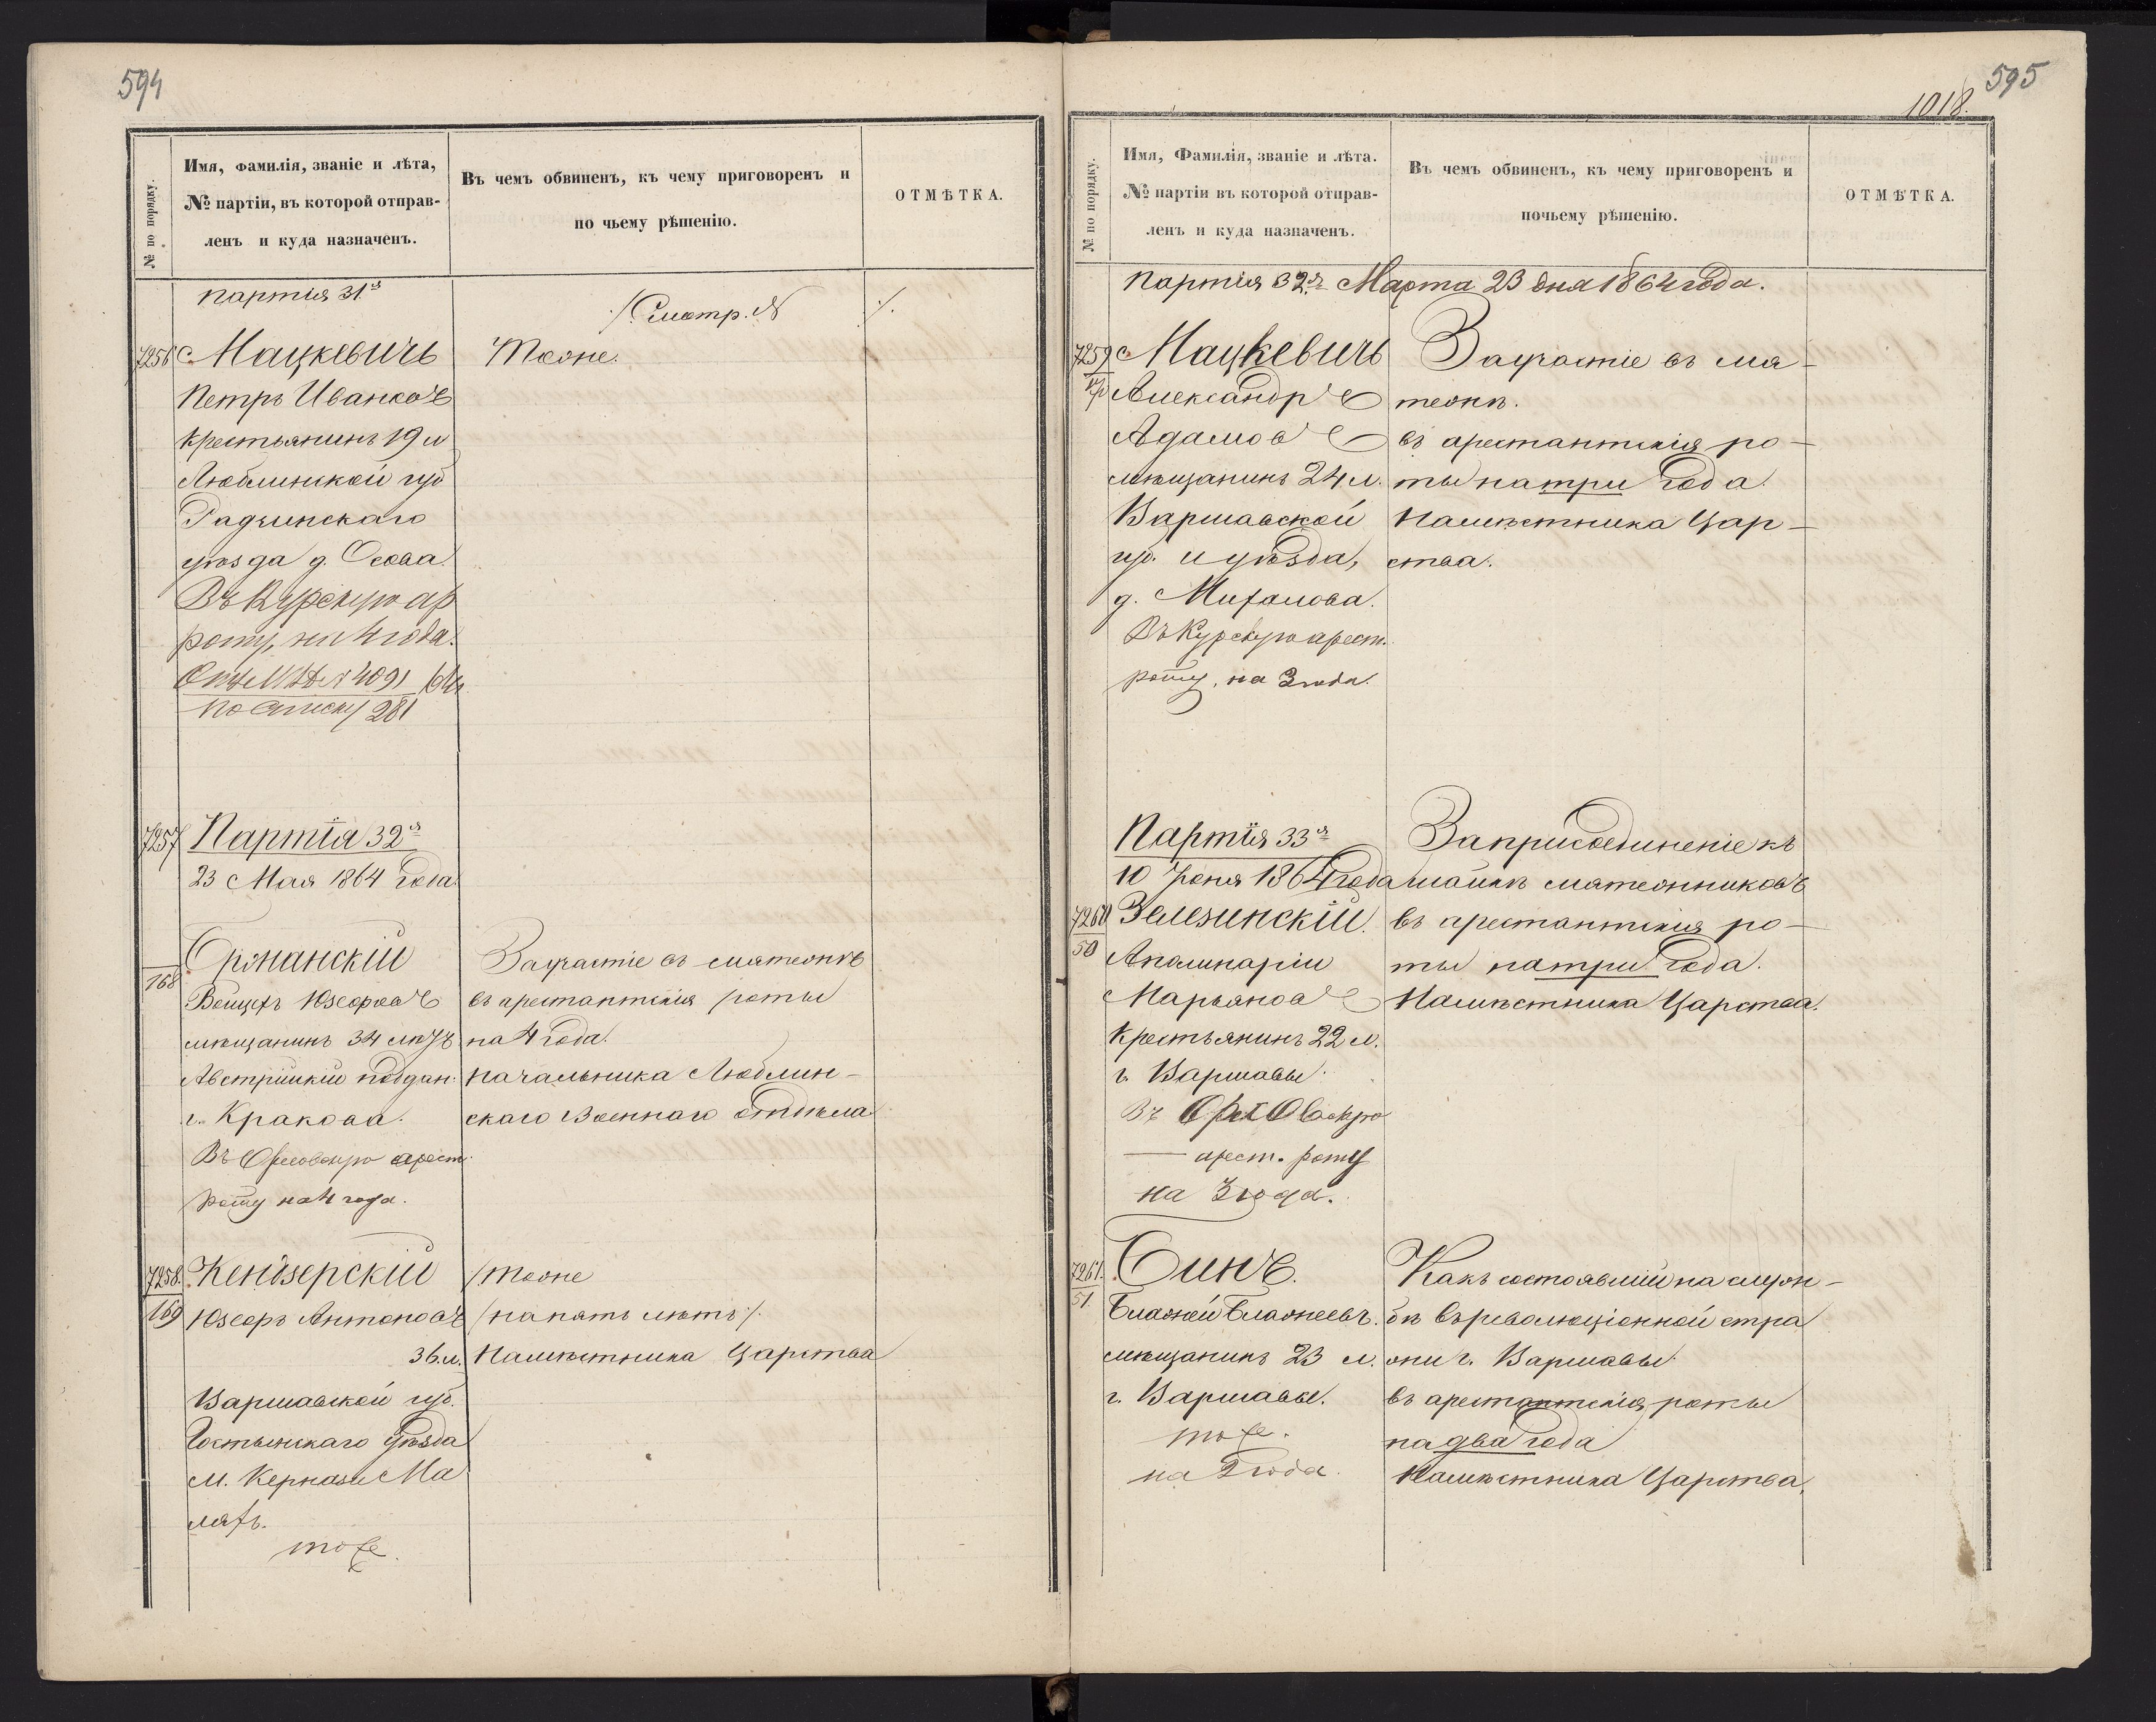 594
№ по порядку.
Имя, фамилія, званіе и лѣта,
№ партіи, въ которой отправ-
ленъ и куда назначенъ.
Въ чемъ обвиненъ, къ чему приговоренъ и
по чьему рѣшенію.
ОТМѢТКА.
партія 31я
/Смотр. №
7256 Мацкевичъ
Тоже.
Петръ Иванковъ
крестьянинъ 19 л
Люблинской губ
Радзинскаго
уѣзда д. Осова.
Въ Курскую ар
роту, на 4 года.
4091
по списку 281
7257 Партія 32я
23 Мая 1864 года.
168
Оржанскій
За участіе въ мятежѣ
Войцехъ Юзефовъ
въ арестантскія роты
мѣщанинъ 34 лѣтъ
на 4 года.
Австрійскій поддан.
Начальника Люблин-
г. Кракова.
скаго Военнаго отдѣла
Въ Орловскую арест.
роту на 4 года.
7258. Кендзерскій
/Тоже
169 Юзефъ Антоновъ
/на пять лѣтъ/.
36 л.
Намѣстника Царства
Варшавской губ.
Гостынскаго Уѣзда
м. Кернози Ма
ляхъ.
тоже.
595
1018.
№ по порядку.
Имя, Фамилія, званіе и лѣта.
№ партіи въ которой отправ-
ленъ и куда назначенъ.
Въ чемъ обвиненъ, къ чему приговоренъ и
почьему рѣшенію.
ОТМѢТКА.
партія 32я Марта 23 дня 1864 года.
7259 Мацкевичъ
За участіе въ мя-
Александръ
тежѣ.
Адамовъ
въ арестантскія ро-
мѣщанинъ 24 л.
ты на три года.
Варшавской
Намѣстника Цар-
гу. и уѣзда,
ства.
д. Михалова.
Въ Курскую арест.
роту, на 3 года.
Партія 33я
За присоединеніе къ
10 Іюня 1864 года
шайкѣ мятежниковъ
7260 Зелезинскій.
въ арестантскія ро-
50 Аполинарій
ты на три года.
Марьяновъ
Намѣстника Царства.
крестьянинъ 22 л.
г. Варшавы.
Въ Орловскую
арест. роту
на 3 года.
7261. Синъ.
Какъ состоявшій на служ-
51 Блажей Блажеевъ.
бѣ въ революціонной стра
мѣщанинъ 23 л.
жи г. Варшавы.
г. Варшавы.
въ арестантскія роты
тоже.
на два года
на 2 года.
Намѣстника Царства.